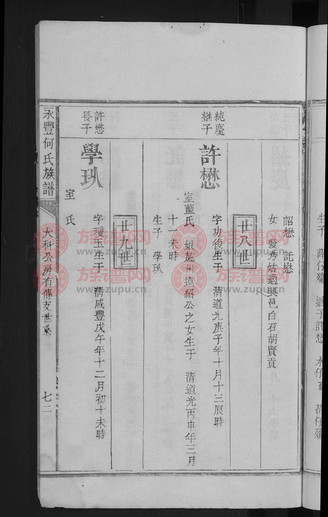 詔懋　託懋
女　髮秀姑適興邑白石胡賢貢
廿八世
純慶
繼子
許懋
字功後生于　清道光庚子年十月十三辰時
室董氏　頭蓝洲道紹公之女生于　清道光丙申年三月
十一未時
生子　學玖
廿九世
許懋
長子
學玖
字獲玉生于　清咸豐戊午年十二月初十未時
室　氏
永豐何氏族譜
大租公房有傳支世系
七二
族譜网
www.zupu.cn